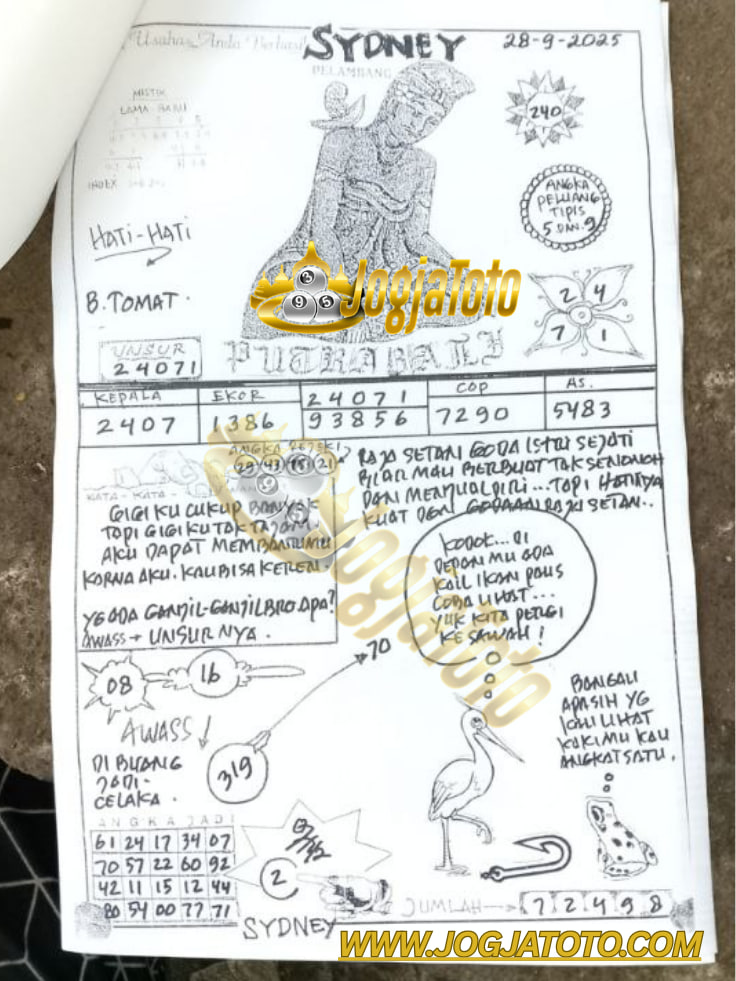 Usaha Anda Berhasil
SYDNEY
28-9-2025
PELAMBANG
MISTIK
LAMA - BARU
INDEX
240
ANGKA
PELUANG
TIPIS
5 DAN 9
HATI-HATI
B. TOMAT.
3
9 5
JogjaToto
2 4
7 1
UNSUR
24071
PUTRA BALI
KEPALA
2407
EKOR
1386
24071
93856
COP
7290
AS.
5483
ANGKA REJEKI
29 43 15 21
KATA - KATA -
GIGI KU CUKUP BANYAK
TOPI GIGI KU TAK TAJAM
AKU DAPAT MEMBANTUMU
KARNA AKU. KAU BISA KEREN.
YG ADA GANJIL-GANJIL BRO APA?
AWASS → UNSUR NYA.
RAJA SETAN GODA ISTRI SEJATI
BIAR MAU BERBUAT TAK SENONOH
DAN MENJUAL DIRI... TAPI HATINYA
KUAT DGN GODAAN RAJA SETAN..
KODOK... DI
DEPAN MU ADA
KAIL IKAN PAUS
COBA LIHAT...
YUK KITA PERGI
KE SAWAH!
08
16
70
AWASS!
319
DI BUANG
JADI-
CELAKA.
BANGAU
APASIH YG
KAU LIHAT
KAKIMU KAU
ANGKAT SATU.
ANGKA JADI
61 24 17 34 07
70 57 22 60 92
42 11 15 12 44
80 54 00 77 71
2
SYDNEY
JUMLAH → 72498
WWW.JOGJATOTO.COM
JogjaToto